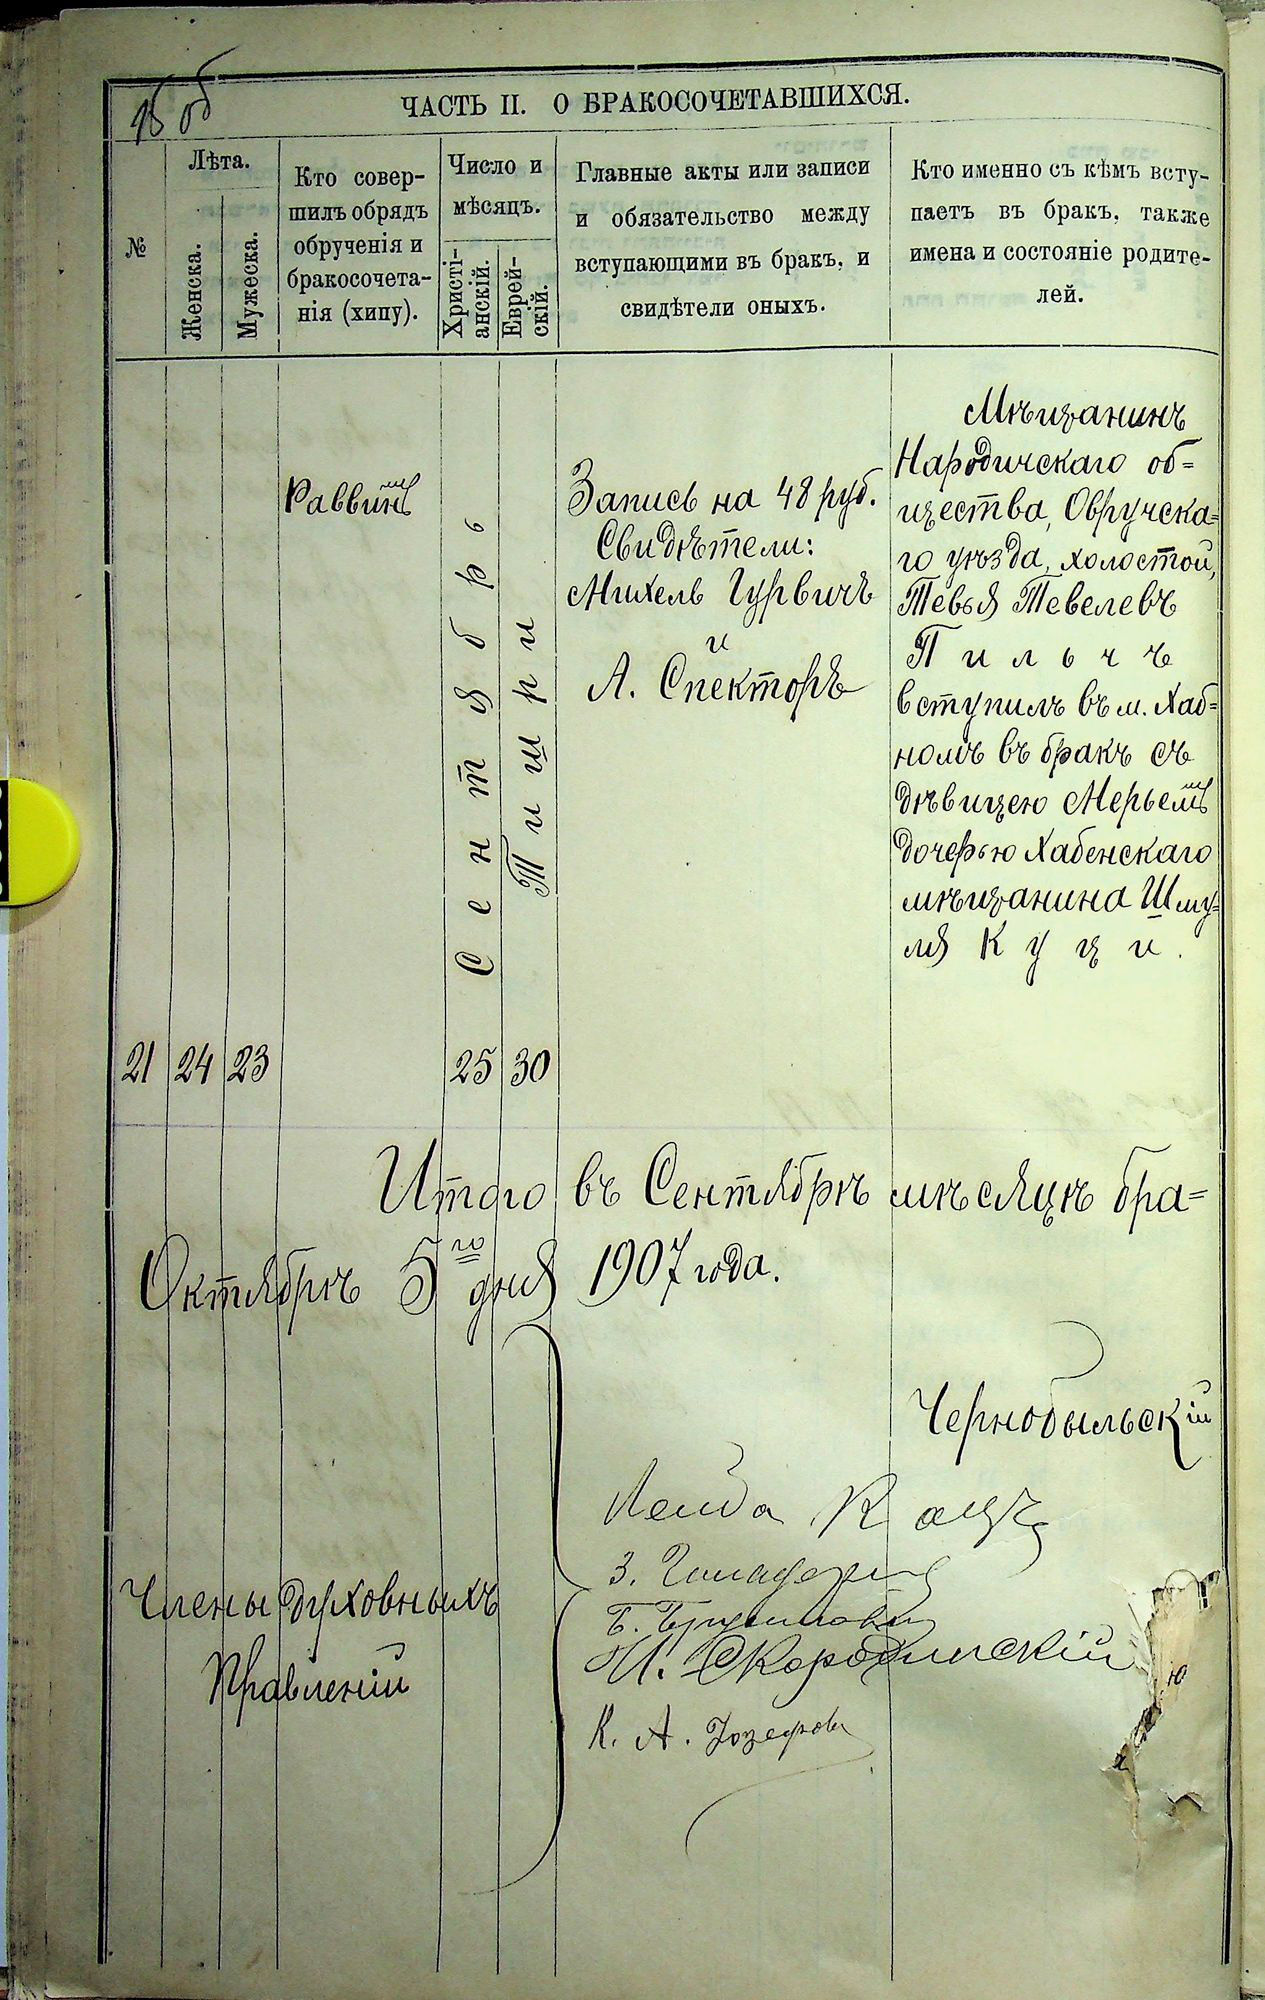 15 об
ЧАСТЬ II. О БРАКОСОЧЕТАВШИХСЯ.
№
Лѣта.
Женска.
Мужеска.
Кто совер-
шилъ обрядъ
обрученія и
бракосочета-
нія (хипу).
Число и
мѣсяцъ.
Христі-
анскій.
Еврей-
скій.
Главные акты или записи
и обязательство между
вступающими въ бракъ, и
свидѣтели оныхъ.
Кто именно съ кѣмъ всту-
паетъ въ бракъ, также
имена и состояніе родите-
лей.
21
24
23
Раввинъ
Сентябрь
25
Тишри
30
Запись на 48 руб.
Свидѣтели:
Михель Гурвичъ
и
А. Спекторъ
Мѣщанинъ
Народичскаго об=
щества, Овручска=
го уѣзда, холостой,
Тевья Тевелевъ
Пильчъ
вступилъ въ м. Хаб=
номъ въ бракъ съ
дѣвицею Мерьемъ
дочерью Хабенскаго
мѣщанина Шму=
ля Куци.
Итого въ Сентябрѣ мѣсяцѣ бра=
Октябрѣ 5го дня 1907 года.
Чернобыльскій
Лейба Кацъ
З.
Б.
И. Скородинскій
К. А.
Члены духовныхъ
Правленій